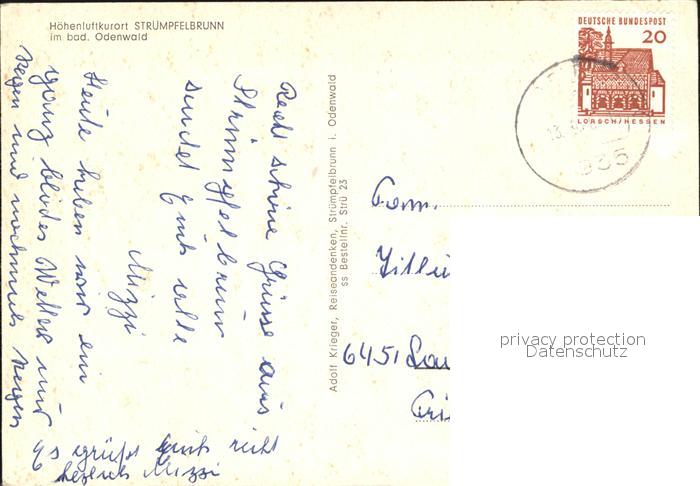 Höhenluftkurort STRÜMPFELBRUNN
im bad. Odenwald
Recht schöne Grüsse aus
Strümpfelbrunn
sendet Euch alle
Mizzi
Heute haben wir ein
ganz blödes Wetter nur
Regen und nochmals Regen
Es grüßt Euch recht
herzlich Mizzi
Adolf Krieger, Reiseandenken, Strümpfelbrunn i. Odenwald
ss Bestellnr. Strü 23
DEUTSCHE BUNDESPOST
20
LORSCH/HESSEN
Fam.
6451
privacy protection
Datenschutz